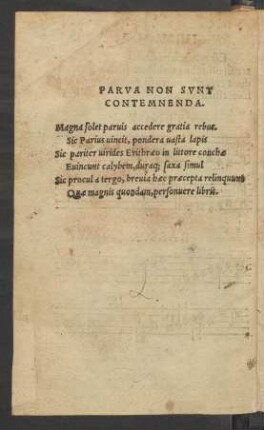 PARVA NON SVNT
CONTEMNENDA.
Magna solet paruis accedere gratia rebus.
Sic Parius uincit, pondera uasta lapis
Sic pariter uirides Erithræo in littore conchæ
Euincunt calybem, duraq; saxa simul
Sic procul a tergo, breuia hæc præcepta relinquunt
Quæ magnis quondam, personuere libris.